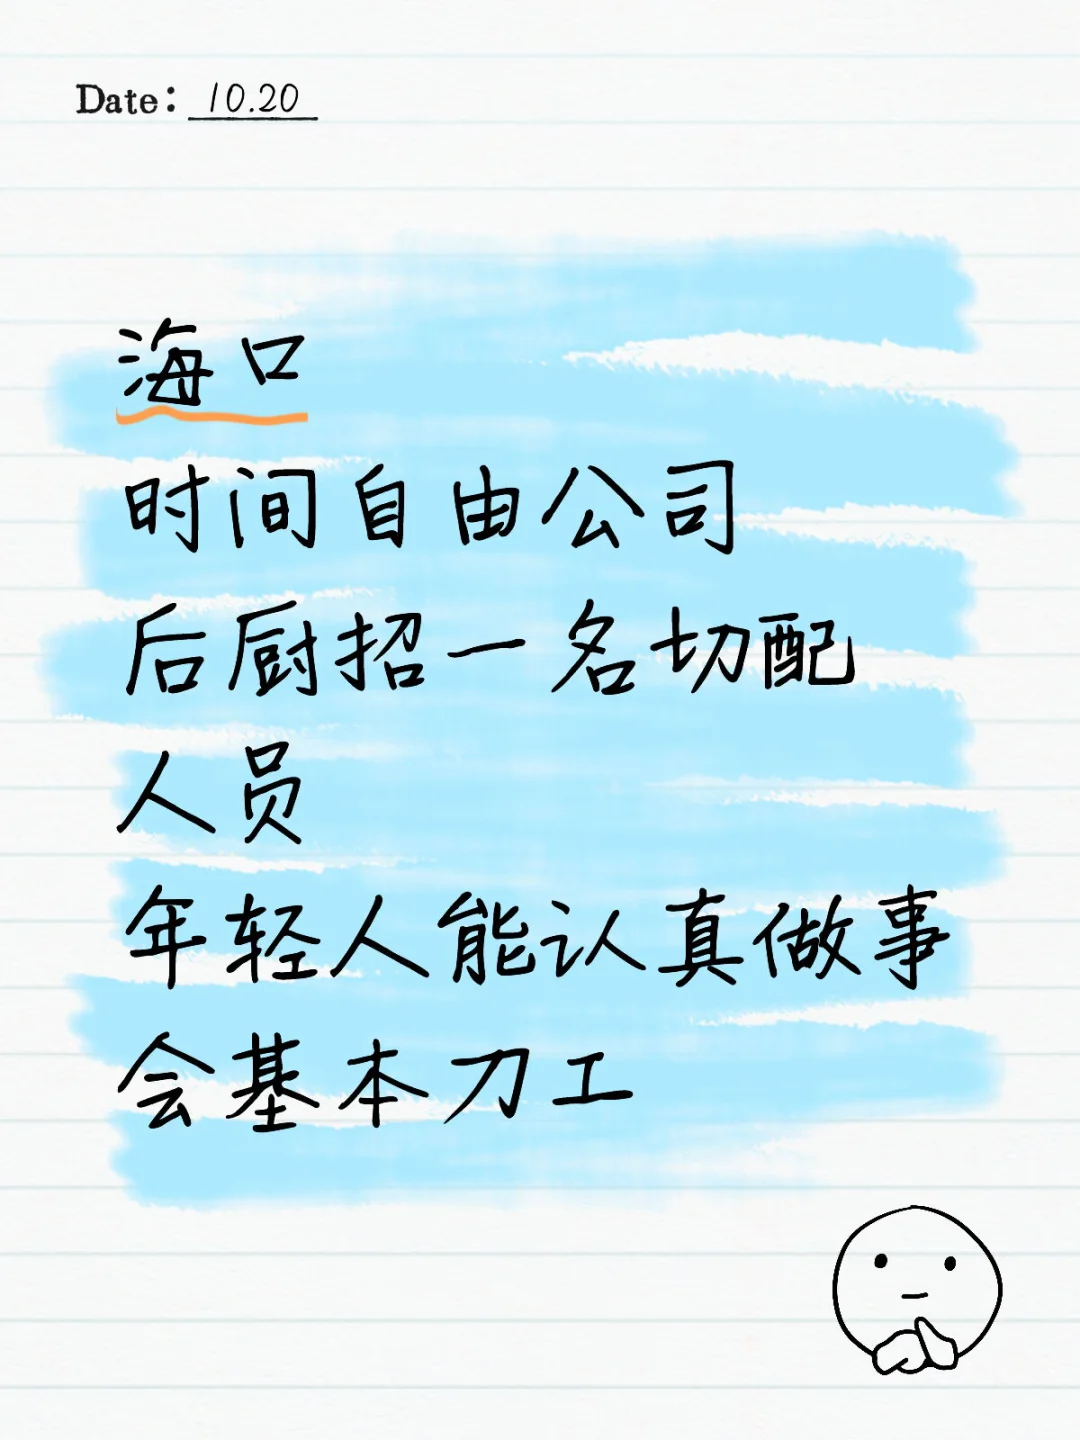 Date: 10.20
海口
时间自由公司
后厨招一名切配
人员
年轻人能认真做事
会基本刀工